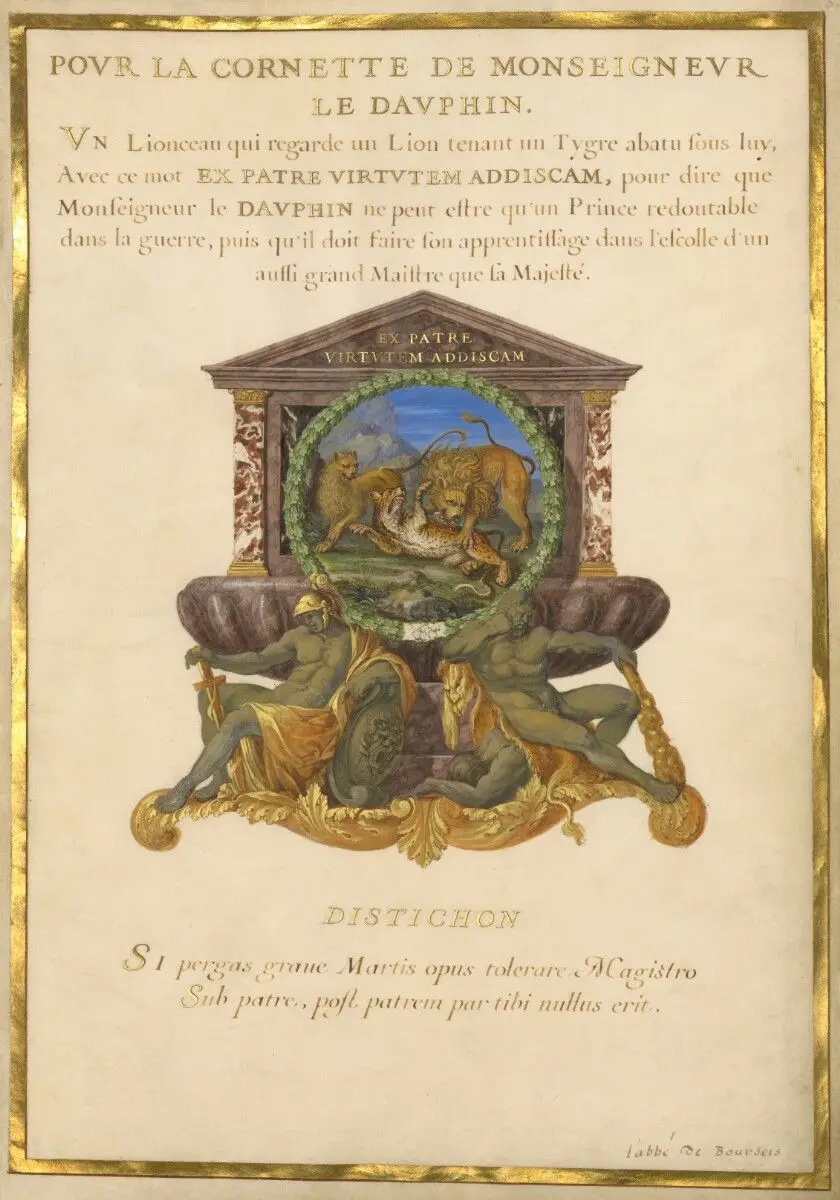 POVR LA CORNETTE DE MONSEIGNEVR
LE DAVPHIN.
VN Lionceau qui regarde un Lion tenant un Tygre abatu ſous luy,
Avec ce mot EX PATRE VIRTVTEM ADDISCAM, pour dire que
Monſeigneur le DAVPHIN ne peut eſtre qu'un Prince redoutable
dans la guerre, puis qu'il doit faire ſon apprentiſſage dans l'eſcolle d'un
auſſi grand Maiſtre que ſa Majeſté.
EX PATRE
VIRTVTEM ADDISCAM
DISTICHON
SI pergas graue Martis opus tolerare Magiſtro
Sub patre, poſt patrem par tibi nullus erit.
l'abbé de Bourseis